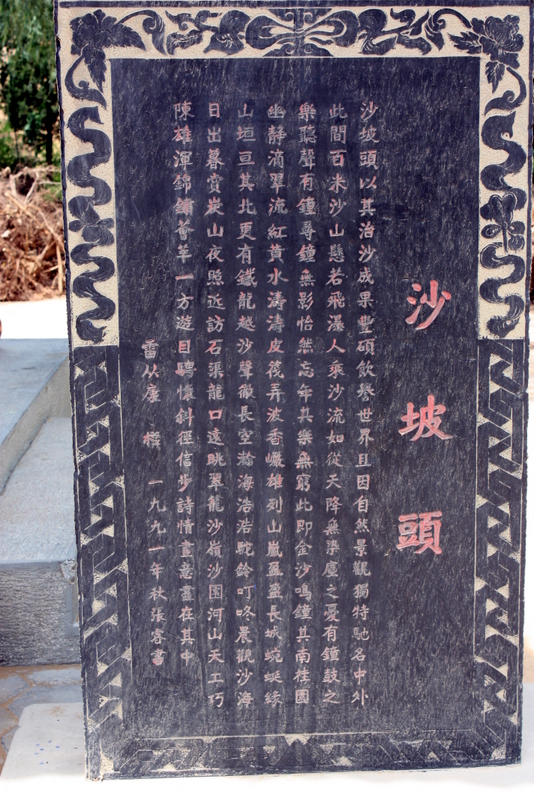 沙坡頭
沙坡頭以其治沙成果豐碩飲譽世界且因自然景觀獨特馳名中外
此間百米沙山懸若飛瀑人乘沙流如從天降無染塵之憂有鐘鼓之
樂聽聲有鐘尋鐘無影怡然忘年其樂無窮此即金沙鳴鐘其南桂園
幽靜滴翠流紅黃水濤濤皮筏弄波香巖雄列山嵐盈盈長城蜿蜒緣
山垣亘其北更有鐵龍越沙聲徹長空瀚海浩浩駝鈴叮咚晨觀沙海
日出暮賞炭山夜照近訪石渠龍口遠眺翠龍沙嶺沙圍河山天工巧
陳雄渾錦繡薈萃一方遊目騁懷斜徑信步詩情畫意盡在其中
雷從康 撰 一九九一年秋張睿書